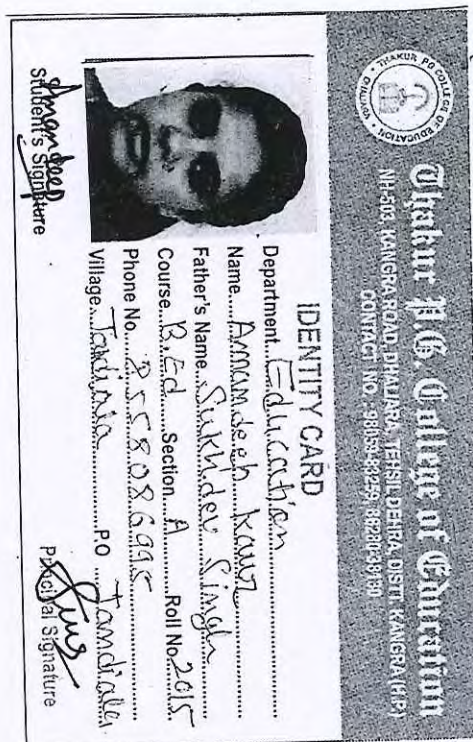 THAKUR PG COLLEGE OF EDUCATION
Thakur P.G. College of Education
NH-503, KANGRA ROAD, DHALIARA, TEHSIL DEHRA, DISTT. KANGRA (H.P.)
IDENTITY CARD
Department....Education
Name.....Amandeep Kaur
Father's Name...Sukhdev Singh
Course...B.Ed...Section...A...Roll No.2015
Phone No....8558086995
Village...Tandiala...P.O....Tandiala
Amandeep
Student's Signature
Principal Signature